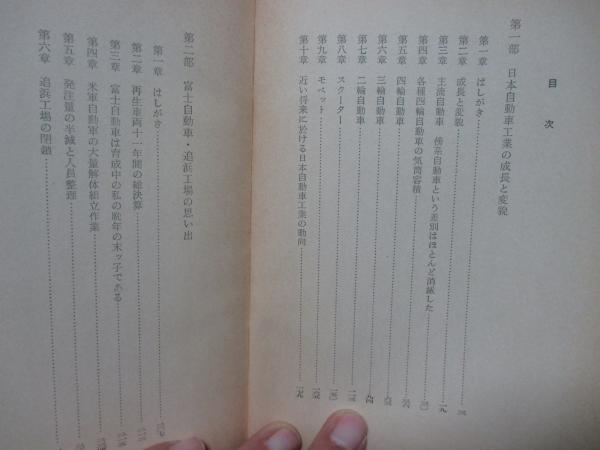 目次
第一部 日本自動車工業の成長と変貌
第一章 はしがき
第二章 成長と変貌
第三章 主流自動車 傍系自動車という差別はほとんど消滅した 一九
第四章 各種四輪自動車の気筒容積
第五章 四輪自動車
第六章 三輪自動車
第七章 二輪自動車
第八章 スクーター
第九章 モペット
第十章 近い将来に於ける日本自動車工業の動向
第二部 富士自動車・追浜工場の思い出
第一章 はしがき
第二章 再生車両十一年間の総決算
第三章 富士自動車は育成中の私の晩年の末ッ子である
第四章 米軍自動車の大量解体組立作業
第五章 発注量の半減と人員整理
第六章 追浜工場の閉鎖